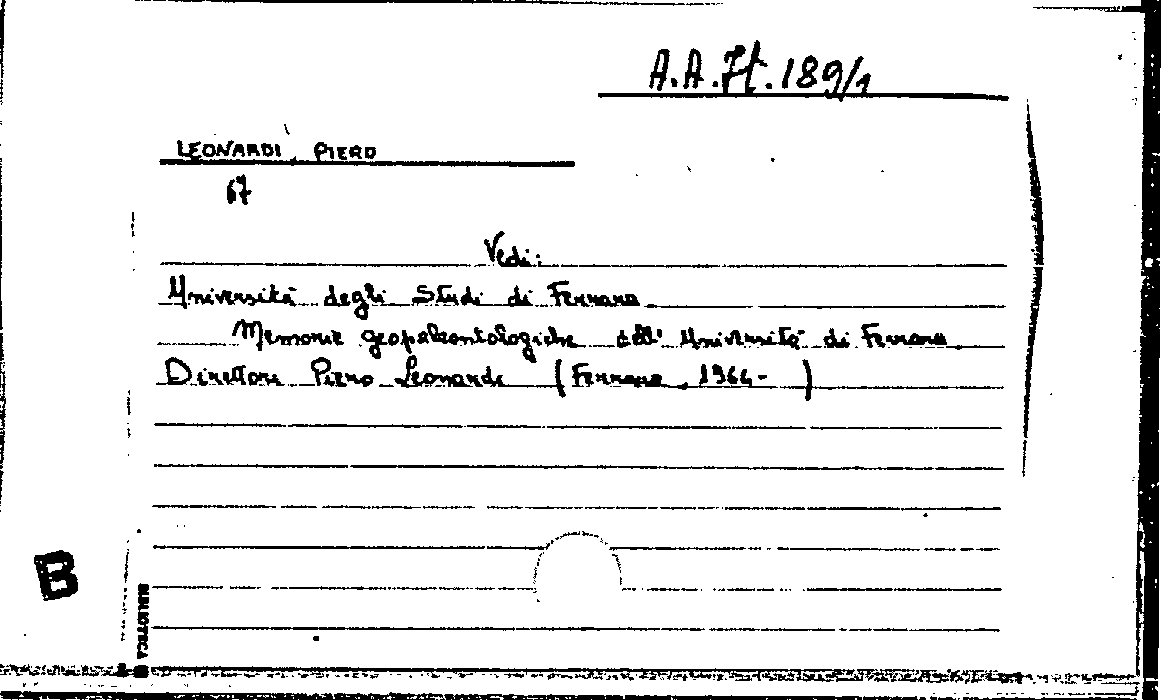 A.A.It.189/1
LEONARDI, PIERO
67
Vedi:
Università degli Studi di Ferrara.
Memorie geopaleontologiche dell' Università di Ferrara.
Direttore Piero Leonardi (Ferrara, 1964- )
B
BIBLIOTECA